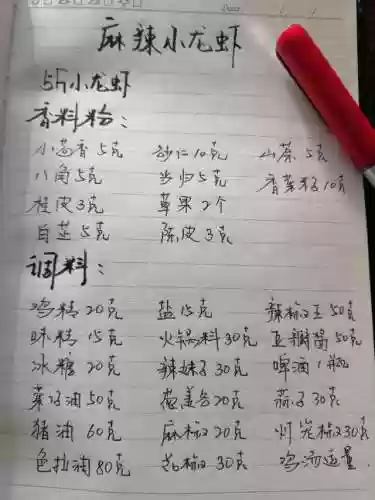 Date
麻辣小龙虾
5斤小龙虾
香料粉：
小茴香5克 砂仁10克 山萘5克
八角5克 当归5克 香菜籽10克
桂皮3克 草果2个
白芷5克 陈皮3克
调料：
鸡精20克 盐15克 辣椒王50克
味精15克 火锅料30克 豆瓣酱50克
冰糖20克 辣妹子30克 啤酒1瓶
菜籽油50克 葱姜各20克 蒜子30克
猪油60克 麻椒20克 灯笼椒30克
色拉油80克 花椒30克 鸡汤适量